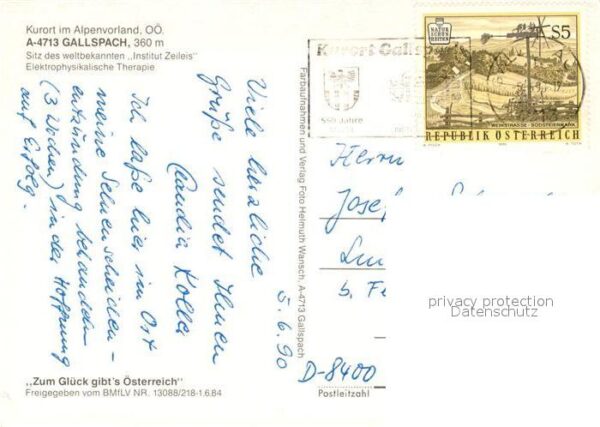 Kurort im Alpenvorland, OÖ.
A-4713 GALLSPACH, 360 m
Sitz des weltbekannten „Institut Zeileis"
Elektrophysikalische Therapie
Viele herzliche
Grüße sendet Ihnen
Claudia
Ich lasse hier im Ort
meine Sehnenscheiden-
entzündung behandeln
(3 Wochen) in der Hoffnung
auf Erfolg.
5.6.90
„Zum Glück gibt's Österreich"
Freigegeben vom BMfLV NR. 13088/218-1.6.84
Farbaufnahmen und Verlag Foto Helmuth Wansch, A-4713 Gallspach
Kurort Gallspach
550 Jahre
NATUR
SCHÖN
S5
WEINSTRASSE · SÜDSTEIERMARK
REPUBLIK ÖSTERREICH
Herrn
Josef
D-8400
Postleitzahl
privacy protection
Datenschutz